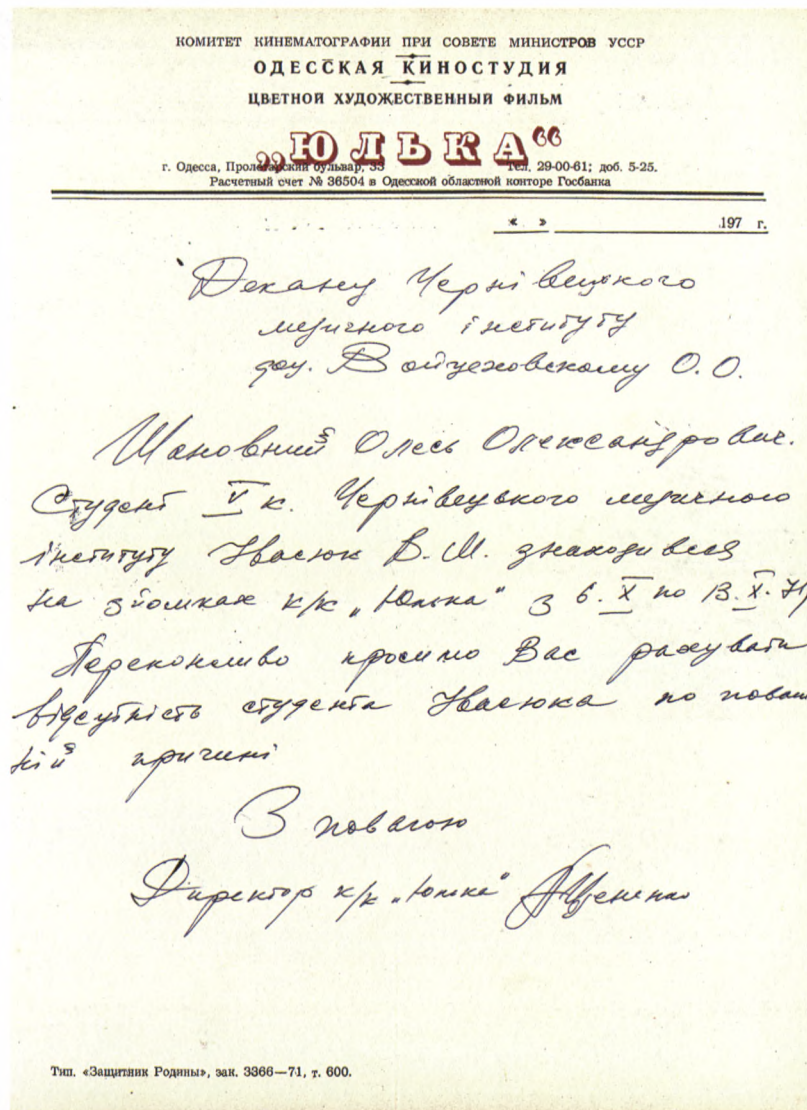 КОМИТЕТ КИНЕМАТОГРАФИИ ПРИ СОВЕТЕ МИНИСТРОВ УССР
ОДЕССКАЯ КИНОСТУДИЯ
ЦВЕТНОЙ ХУДОЖЕСТВЕННЫЙ ФИЛЬМ
„ЮЛЬКА“
г. Одесса, Пролетарский бульвар, 33 Тел. 29-00-61; доб. 5-25.
Расчетный счет № 36504 в Одесской областной конторе Госбанка
« » 197 г.
Декану Чернівецького
медичного інституту
доц. Войцеховскому О.О.
Шановний Олесь Олександрович.
Студент V к. Чернівецького медичного
інституту Івасюк В.М. знаходився
на зйомках к/к „Юлька“ з 6.X по 13.X.71
Переконливо просимо Вас рахувати
відсутність студента Івасюка по поваж
ній причині
З повагою
Директор к/к „Юлька“
Тип. «Защитник Родины», зак. 3366—71, т. 600.